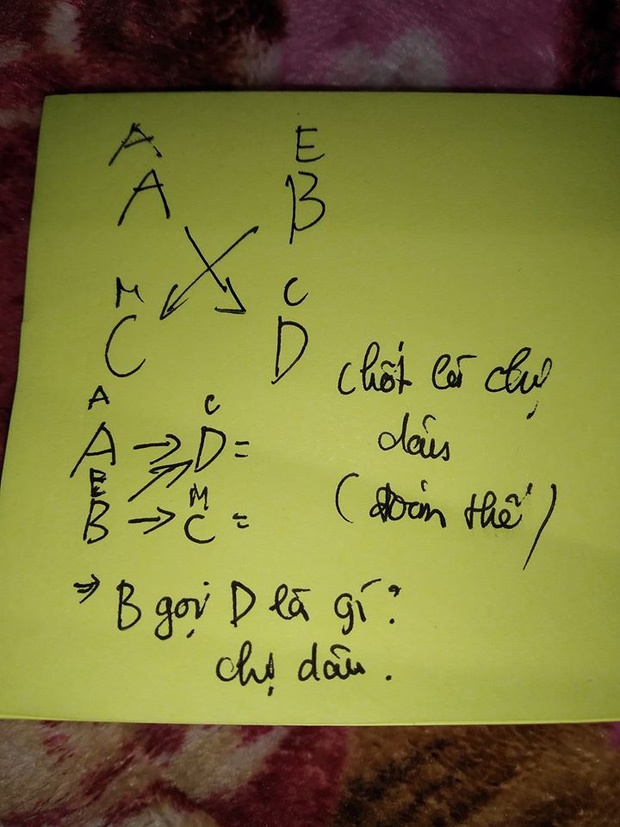 A E
A B
M C
C D
A C
A → D =
E
B → C =
M
chốt là chị
dâu
(đoán thế)
⇒ B gọi D là gì?
chị dâu.